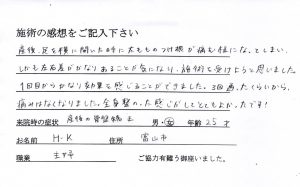 施術の感想をご記入下さい
産後、足を横に開いた時に太もものつけ根が痛む様になってしまい、
しかも左右差がかなりあることが気になり、施術を受けようと思いました。
1回目からかなり効果を感じることができました。3回通ったくらいから、
痛みはなくなりました。全身整った感じがしてとてもよかったです!
来院時の症状 産後の骨盤矯正 男・女 年齢25才
お名前 H・K 住所 富山市
職業 主婦 ご協力有難う御座いました。